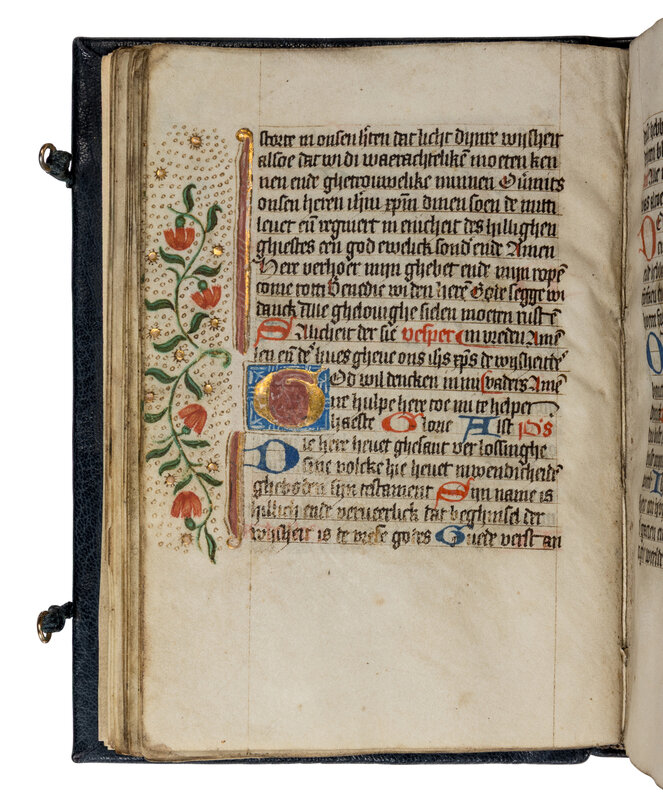 storte in onsen hten dat licht dijnre wijsheit
alsoe dat wi di waerachtelikē moeten ken
nen ende ghetrouwelike minnen Ou̅mits
onsen heren ihm xpm dinen soen de mitti
leuet en̄ regniert in enicheit des hillighen
ghiestes een god ewelick sond' ende Amen
Here verhoer mijn ghebet ende mijn ropē
come totti Benedie wi den herē Gode segge wi
danck Alle ghelouighe sielen moeten rustē
Salicheit der sie vesper in vreden Amē
len en̄ des liues gheue ons ihs xps de wijsheit
God wil dencken in mi vaders Amē
Here hulpe here toe mi te helpen
haeste Glorie Alst ps
Die here heuet ghesant verlossinghe
sine volcke hie heuet in ewicheide
gheboden sijn testament Sijn name is
hillich ende verueerlick dat beghinsel der
wijsheit is de vrese godes Guede verstan